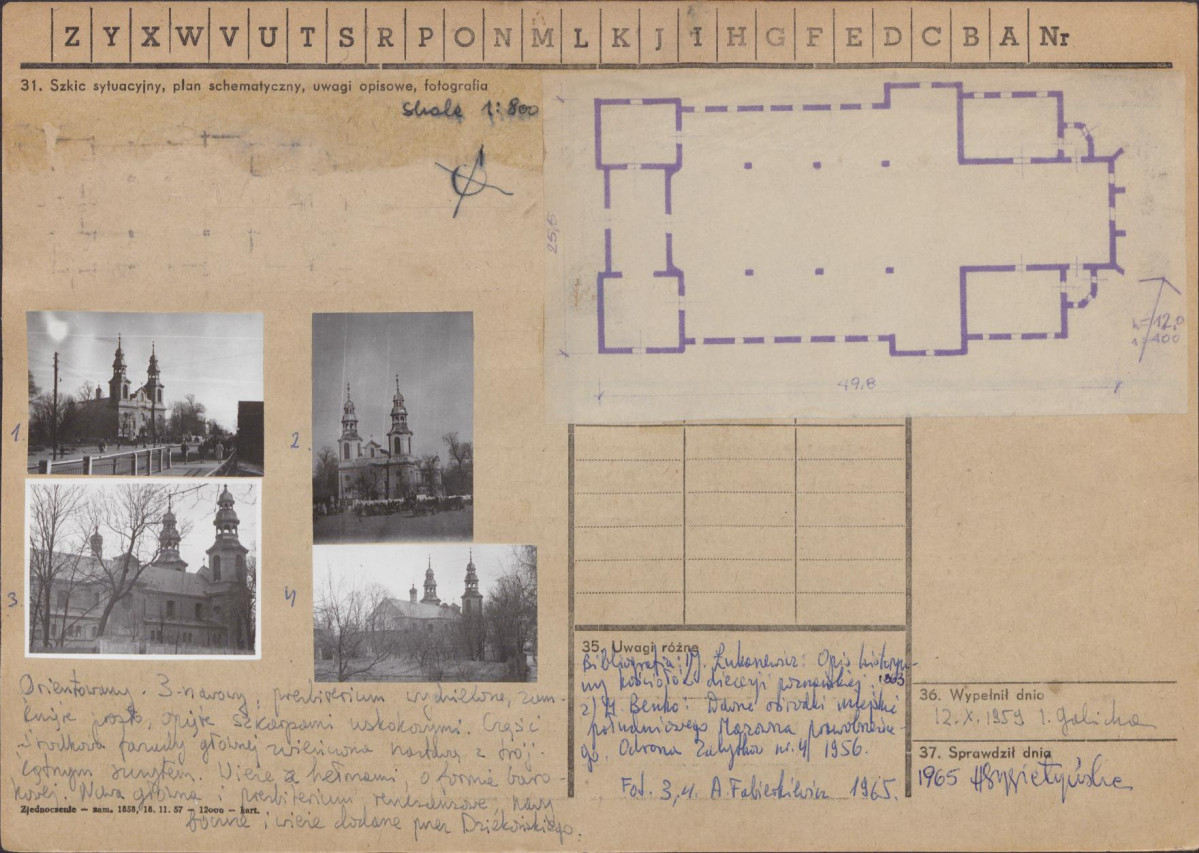 Z Y X W V U T S R P O N M L K J I H G F E D C B A Nr
31. Szkic sytuacyjny, plan schematyczny, uwagi opisowe, fotografia
skala 1:800
25,5
49,8
12,0
1:400
1.
2
3.
4
Orientowany. 3-nawowy, prezbiterium wydzielone, zam-
knięte prosto, opięte szkarpami uskokowymi. Część
środkowa fasady głównej zwieńczona z trój-
kątnym szczytem. Wieże z hełmami, o formie baro-
kowej. Nawa główna i prezbiterium renesansowe, nawy
boczne i wieże dodane przez Dziekońskiego.
Zjednoczenie — zam. 1858, 18. 11. 57 — 12000 — kart.
35. Uwagi różne
Bibliografia: J. Łukaszewicz: Opis historycz-
ny kościołów diecezji poznańskiej 1863
2) J. Benko: Dawne ośrodki miejskie
południowego Mazowsza
go. Ochrona Zabytków nr. 4/1956.
Fot. 3,4. A. Fabierkiewicz 1965.
36. Wypełnił dnia
12. X. 1959 J. Galicka
37. Sprawdził dnia
1965 H. Sygietyńska